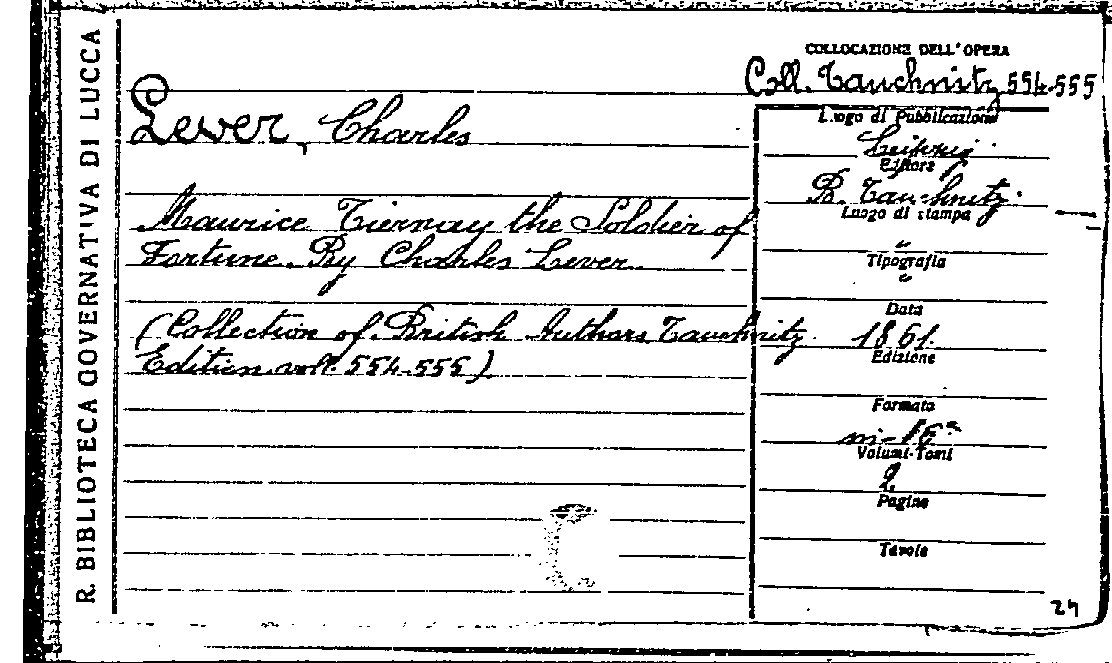 R. BIBLIOTECA GOVERNATIVA DI LUCCA
COLLOCAZIONE DELL'OPERA
Coll. Tauchnitz 554-555
Lever, Charles
Maurice Tiernay the Soldier of
Fortune. By Charles Lever.
(Collection of British Authors Tauchnitz
Edition voll. 554-555)
Luogo di Pubblicazione
Leipzig.
Editore
B. Tauchnitz.
Luogo di stampa
"
Tipografia
"
Data
1861.
Edizione
Formato
in-16°
Volumi-Tomi
2
Pagine
Tavole
24